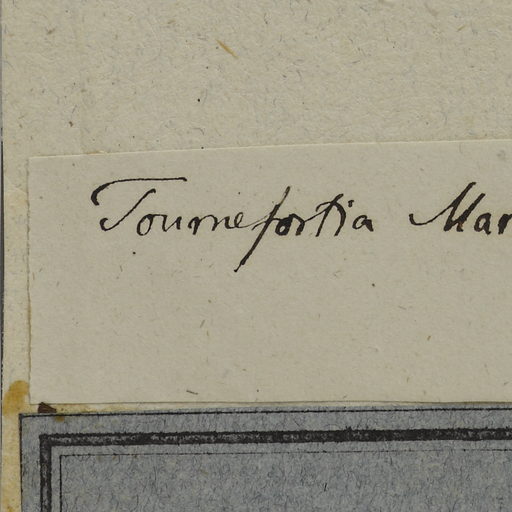 Tournefortia Mar